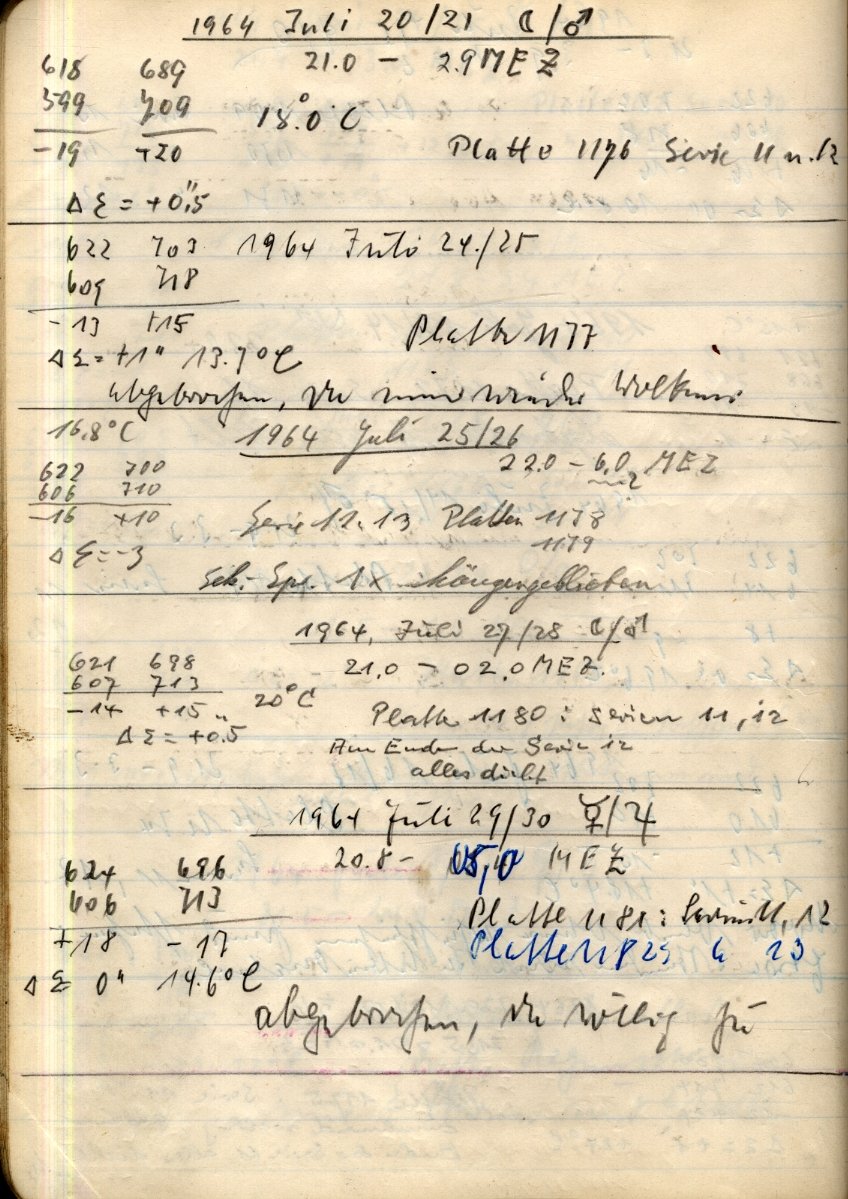 1964 Juli 20/21 ☾/♂
618 689 21.0 – 2.9 MEZ
599 709 18.0°C
-19 +20 Platte 1176 Serie 11 u. 12
Δ Σ = +0",5
622 703 1964 Juli 24./25
609 718
-13 +15 Platte 1177
Δ Σ = +1" 13.7°C
abgebrochen, da immer wieder Wolken
16.8°C 1964 Juli 25/26
622 700 22.0 – 6.0 MEZ
606 710
-16 +10 Serie 12. 13 Platten 1178
1179
Δ Σ = -3
Sek.-Spe. 1x hängengeblieben
1964, Juli 27/28 ☾/♂
621 698 21.0 – 02.0 MEZ
607 713 20°C
-14 +15 Platte 1180 : Serien 11, 12
Δ Σ = +0.5"
Am Ende der Serie 12
alles dicht
1964 Juli 29/30 ☿/♃
624 696 20.8 – 05,0 MEZ
606 713 Platte 1181 : Serien 11, 12
+18 -17 Platte 1182 13
Δ Σ 0" 14.6°C
abgebrochen, da völlig zu